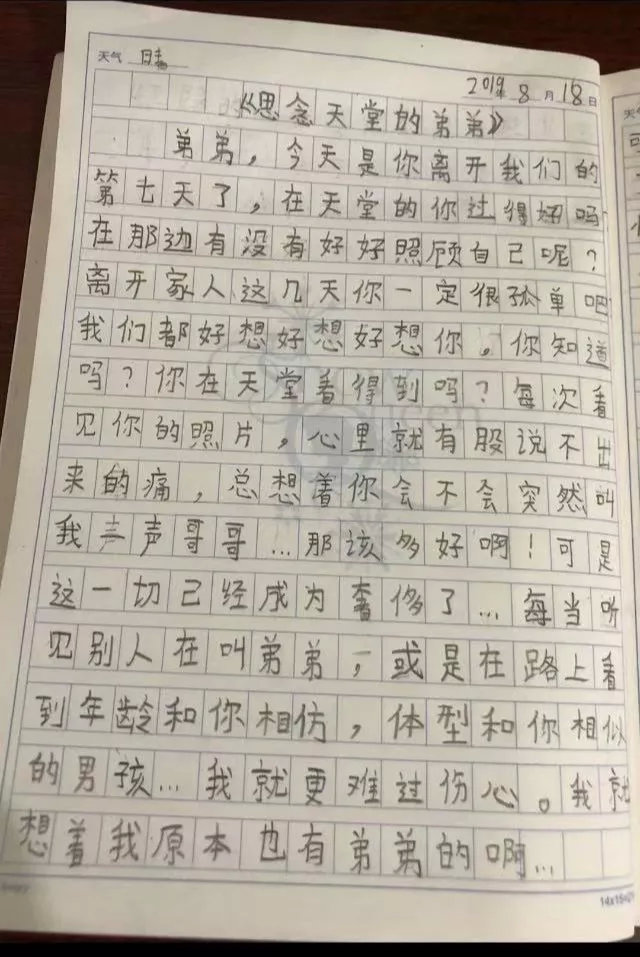 天气 晴
2019年 8月 18日
《思念天堂的弟弟》
弟弟，今天是你离开我们的
第七天了，在天堂的你过得好吗？
在那边有没有好好照顾自己呢？
离开家人这几天你一定很孤单吧
我们都好想好想好想你。你知道
吗？你在天堂看得到吗？每次看
见你的照片，心里就有股说不出
来的痛，总想着你会不会突然叫
我声哥哥...那该多好啊！可是
这一切已经成为奢侈了...每当听
见别人在叫弟弟，或是在路上看
到年龄和你相仿，体型和你相似
的男孩...我就更难过伤心。我就
想着我原本也有弟弟的啊...